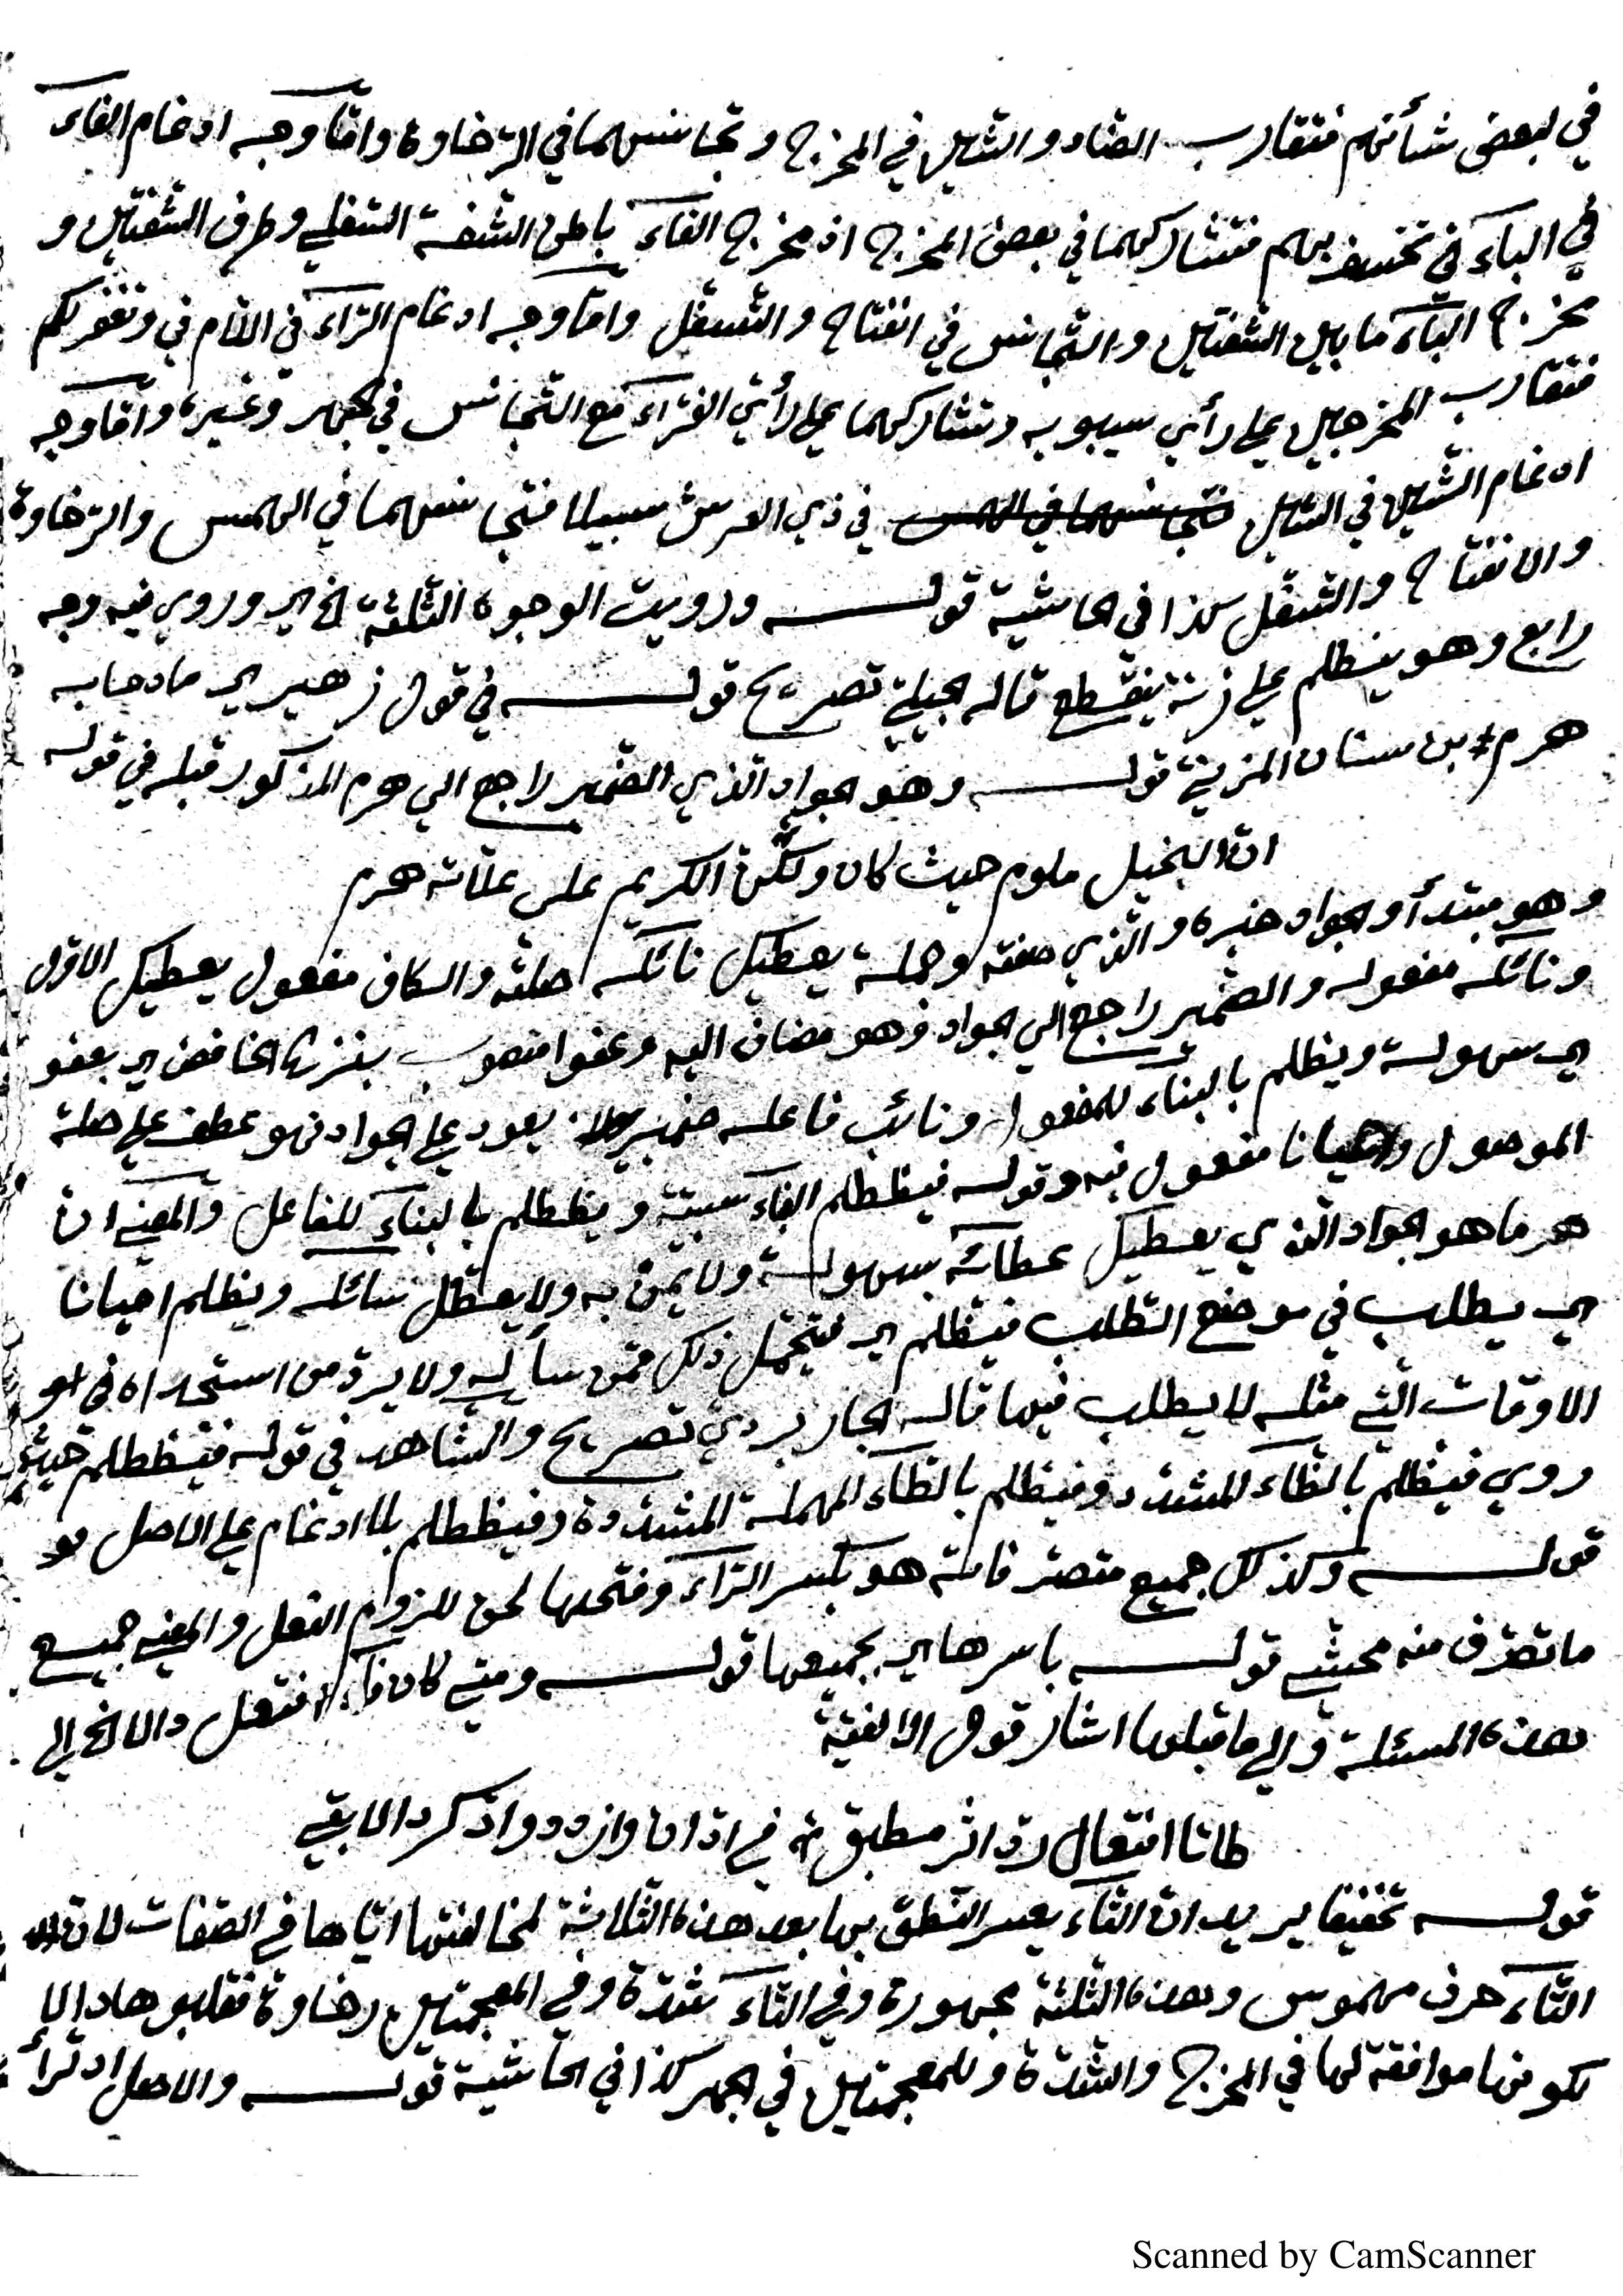 في لبعض شأنهم فتقارب الضاد والشين في المخرج وتجانسهما في الرخاوة وامّا وجه ادغام الفاء
في الباء في نخسف بهم فتشاركهما في بعض المخرج اذ مخرج الفاء باطن الشفة السفلي وطرف الشفتين و
مخرج الباء ما بين الشفتين والتجانس في انفتاح والتسفل وامّا وجه ادغام الرّاء في اللام في ونغفر لكم
فتقارب المخرجين علي رأي سيبويه وتشاركهما علي رأي الفرّاء مع التجانس في الجهر وغيره وامّا وجه
ادغام الشين في السين فتجانسهما في الهمس في ذي العرش سبيلا فتجانسهما في الهمس والرّخاوة
والانفتاح والتسفّل كذا في الحاشية قوله ورويت الوجوه الثلثة الخ اي وروي فيه وجه
رابع وهو ينظلم علي زنة ينقطع قاله الجيلي تصريح قوله في قول زهير اي مادحا به
هرم بن سنان المزينة قوله وهو الجواد الذي الضمير راجع الي هرم المذكور قبله في قوله
انّ البخيل ملوم حيث كان ولكنّ الكريم على علّاته هرم
وهو مبتدأ والجواد خبره والّذي صفته وجملة يعطيك نائله صلته والكاف مفعول يعطيك الاوّل
ونائله مفعوله والضّمير راجع الي الجواد فهو مضاف اليه وعفوا منصوب بنزع الخافض اي بعفو
اي سهولة ويظلم بالبناء للمفعول ونائب فاعله ضمير يعود علي الجواد فهو عطف علي صلة
الموصول واحيانا مفعول فيه وقوله فيظطلم الفاء سببيّة ويظطلم بالبناء للفاعل والمعني ان
هرما هو الجواد الّذي يعطيك عطائه بسهولة ولا يمنّ به ولا يعطّل سائله ويظلم احيانا
اي يطلب في موضع الطّلب فيظّلم اي يتحمّل ذلك ممّن سأله ولا يردّ من استجداه في
الاوقات الّتي مثله لا يطلب فيها قاله الجاربردي تصريح والشّاهد في قوله فيظطلم حيث
روي فيظّلم بالظّاء المشدد وفيطّلم بالطّاء المهملة المشدّدة وفيظطلم بلا ادغام علي الاصل
قوله وكذلك جميع متصرفاته هو بكسر الرّاء وفتحها لحن للزوم الفعل والمعني جميع
ما تصرّف منه محشّي قوله باسرها اي بجميعها قوله ومتي كان فاء افتعل دالا الخ الي
هذه المسئلة والي ما قبلها اشار قول الالفيّة
طاتا افتعال ردّ اثر مطبق في ادّان وازدد وادّكر دالا بقي
قوله تخفيفا يريد انّ التّاء يعسر النّطق بها بعد هذه الثّلاثة لمخالفتها ايّاها في الصّفات لانّ
التّاء حرف مهموس وهذه الثلثة مجهورة وفي التّاء شدّة وفي المعجمتين رخاوة فقلبوها دالا
لكونها موافقة لها في المخرج والشّدّة وللمعجمتين في الجهر كذا في الحاشية قوله والاصل ادترأ
Scanned by CamScanner